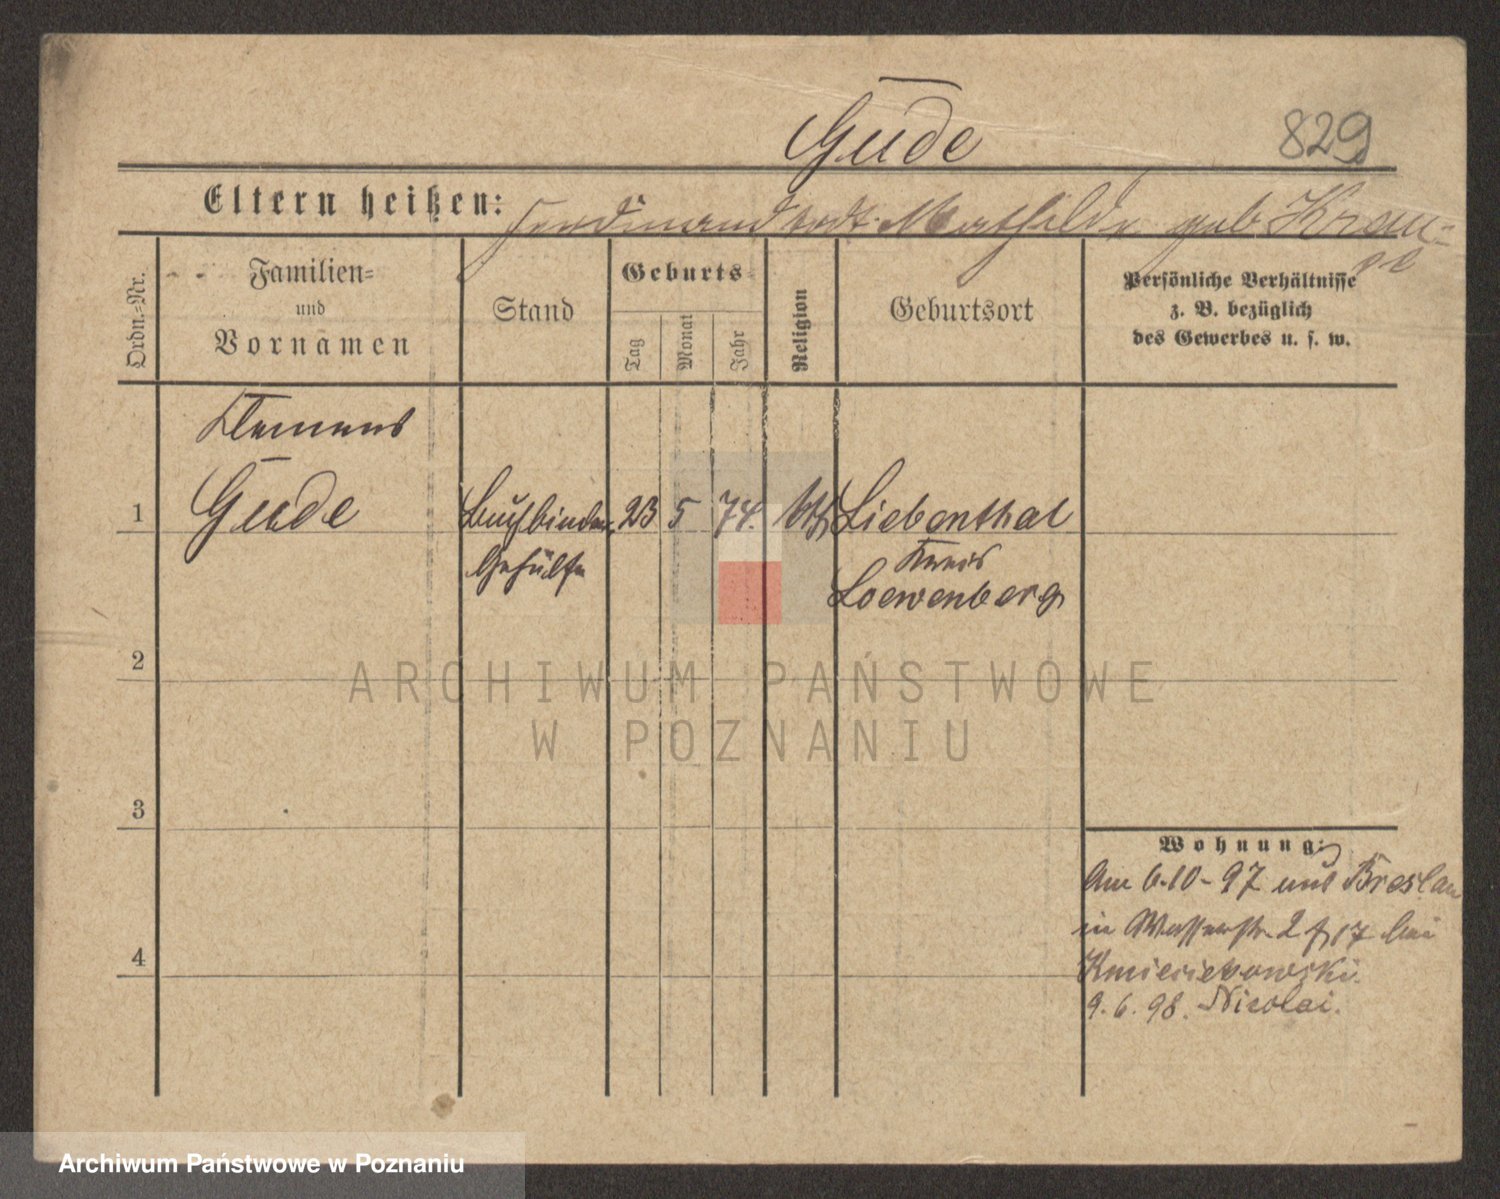 Gude
829
Eltern heißen: Ferdinand todt. Mathilde geb. Kram-
pe
Ordn.=Nr.
Familien=
und
Vornamen
Stand
Geburts
Tag
Monat
Jahr
Religion
Geburtsort
Persönliche Verhältnisse
z. B. bezüglich
des Gewerbes u. s. w.
Klemens
1 Gude Buchbinder 23 5 74. kth Liebenthal
Gehülfe Kreis
Loewenberg
2
ARCHIWUM PAŃSTWOWE
W POZNANIU
3
Wohnung:
Am 6.10-97 aus Breslau
in Wasserstr. 2 f, 17 bei
4
9.6.98. Nicolai.
Archiwum Państwowe w Poznaniu